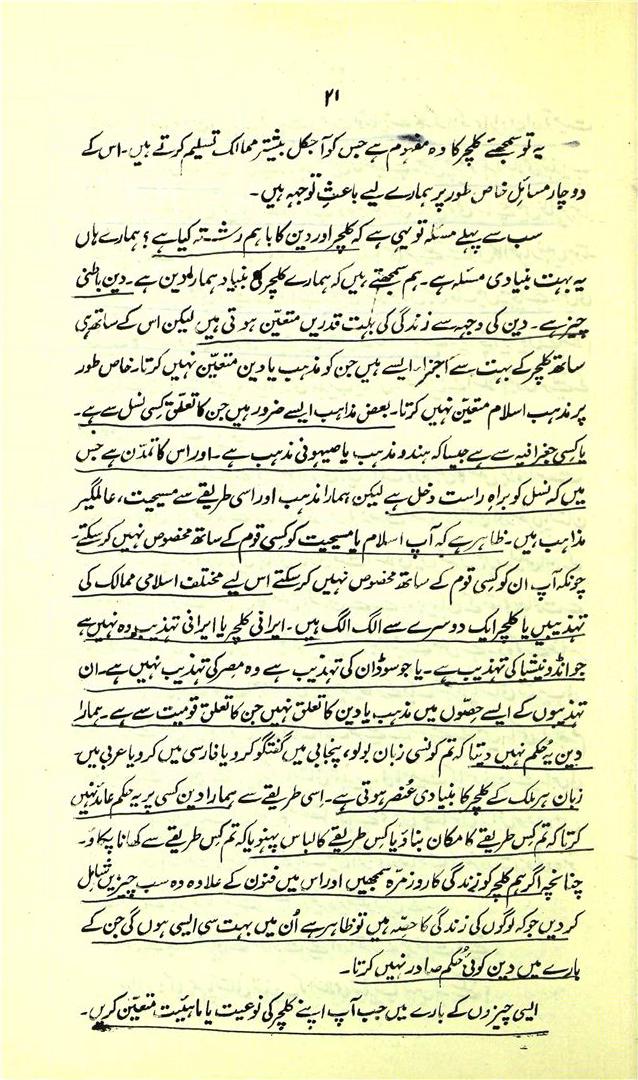 ۲۱
یہ تو سمجھئے کلچر کا وہ مفہوم ہے جس کو آجکل بیشتر ممالک تسلیم کرتے ہیں۔ اس کے
دو چار مسائل خاص طور پر ہمارے لیے باعثِ توجہہ ہیں۔
سب سے پہلے مسئلہ تو یہی ہے کہ کلچر اور دین کا باہم رشتہ کیا ہے؟ ہمارے ہاں
یہ بہت بنیادی مسئلہ ہے۔ ہم سمجھتے ہیں کہ ہمارے کلچر کی بنیاد ہمارا دین ہے۔ دین باطنی
چیز ہے۔ دین کی وجہ سے زندگی کی بہت قدریں متعیّن ہوتی ہیں لیکن اس کے ساتھ ہی
ساتھ کلچر کے بہت سے اجزا ایسے ہیں جن کو مذہب یا دین متعیّن نہیں کرتا۔ خاص طور
پر مذہب اسلام متعیّن نہیں کرتا۔ بعض مذاہب ایسے ضرور ہیں جن کا تعلق کسی نسل سے ہے۔
یا کسی جغرافیہ سے ہے جیسا کہ ہندو مذہب یا صیہونی مذہب ہے۔ اور اس کا تمدّن ہے جس
میں کہ نسل کو براہِ راست دخل ہے لیکن ہمارا مذہب اور اسی طریقے سے مسیحیت، عالمگیر
مذاہب ہیں۔ ظاہر ہے کہ آپ اسلام یا مسیحیت کو کسی قوم کے ساتھ مخصوص نہیں کر سکتے۔
چونکہ آپ ان کو کسی قوم کے ساتھ مخصوص نہیں کر سکتے اس لیے مختلف اسلامی ممالک کی
تہذیبیں یا کلچر ایک دوسرے سے الگ الگ ہیں۔ ایرانی کلچر یا ایرانی تہذیب وہ نہیں ہے
جو انڈونیشیا کی تہذیب ہے۔ یا جو سوڈان کی تہذیب ہے وہ مصر کی تہذیب نہیں ہے۔ ان
تہذیبوں کے ایسے حصّوں میں مذہب یا دین کا تعلق نہیں جن کا تعلق قومیت سے ہے۔ ہمارا
دین یہ حکم نہیں دیتا کہ تم کونسی زبان بولو، پنجابی میں گفتگو کرو یا فارسی میں کرو یا عربی میں۔
زبان ہر ملک کے کلچر کا بنیادی عُنصر ہوتی ہے۔ اسی طریقے سے ہمارا دین کسی پر یہ حکم عائد نہیں
کرتا کہ تم کس طریقے کا مکان بناؤ یا کس طریقے کا لباس پہنو یا کہ تم کس طریقے سے کھانا پکاؤ۔
چنانچہ اگر ہم کلچر کو زندگی کا روزمرّہ سمجھیں اور اس میں فنون کے علاوہ وہ سب چیزیں شامل
کر دیں جو کہ لوگوں کی زندگی کا حصّہ ہیں تو ظاہر ہے اُن میں بہت سی ایسی ہوں گی جن کے
بارے میں دین کوئی حُکم صادر نہیں کرتا۔
ایسی چیزوں کے بارے میں جب آپ اپنے کلچر کی نوعیت یا ماہیّت متعیّن کریں۔